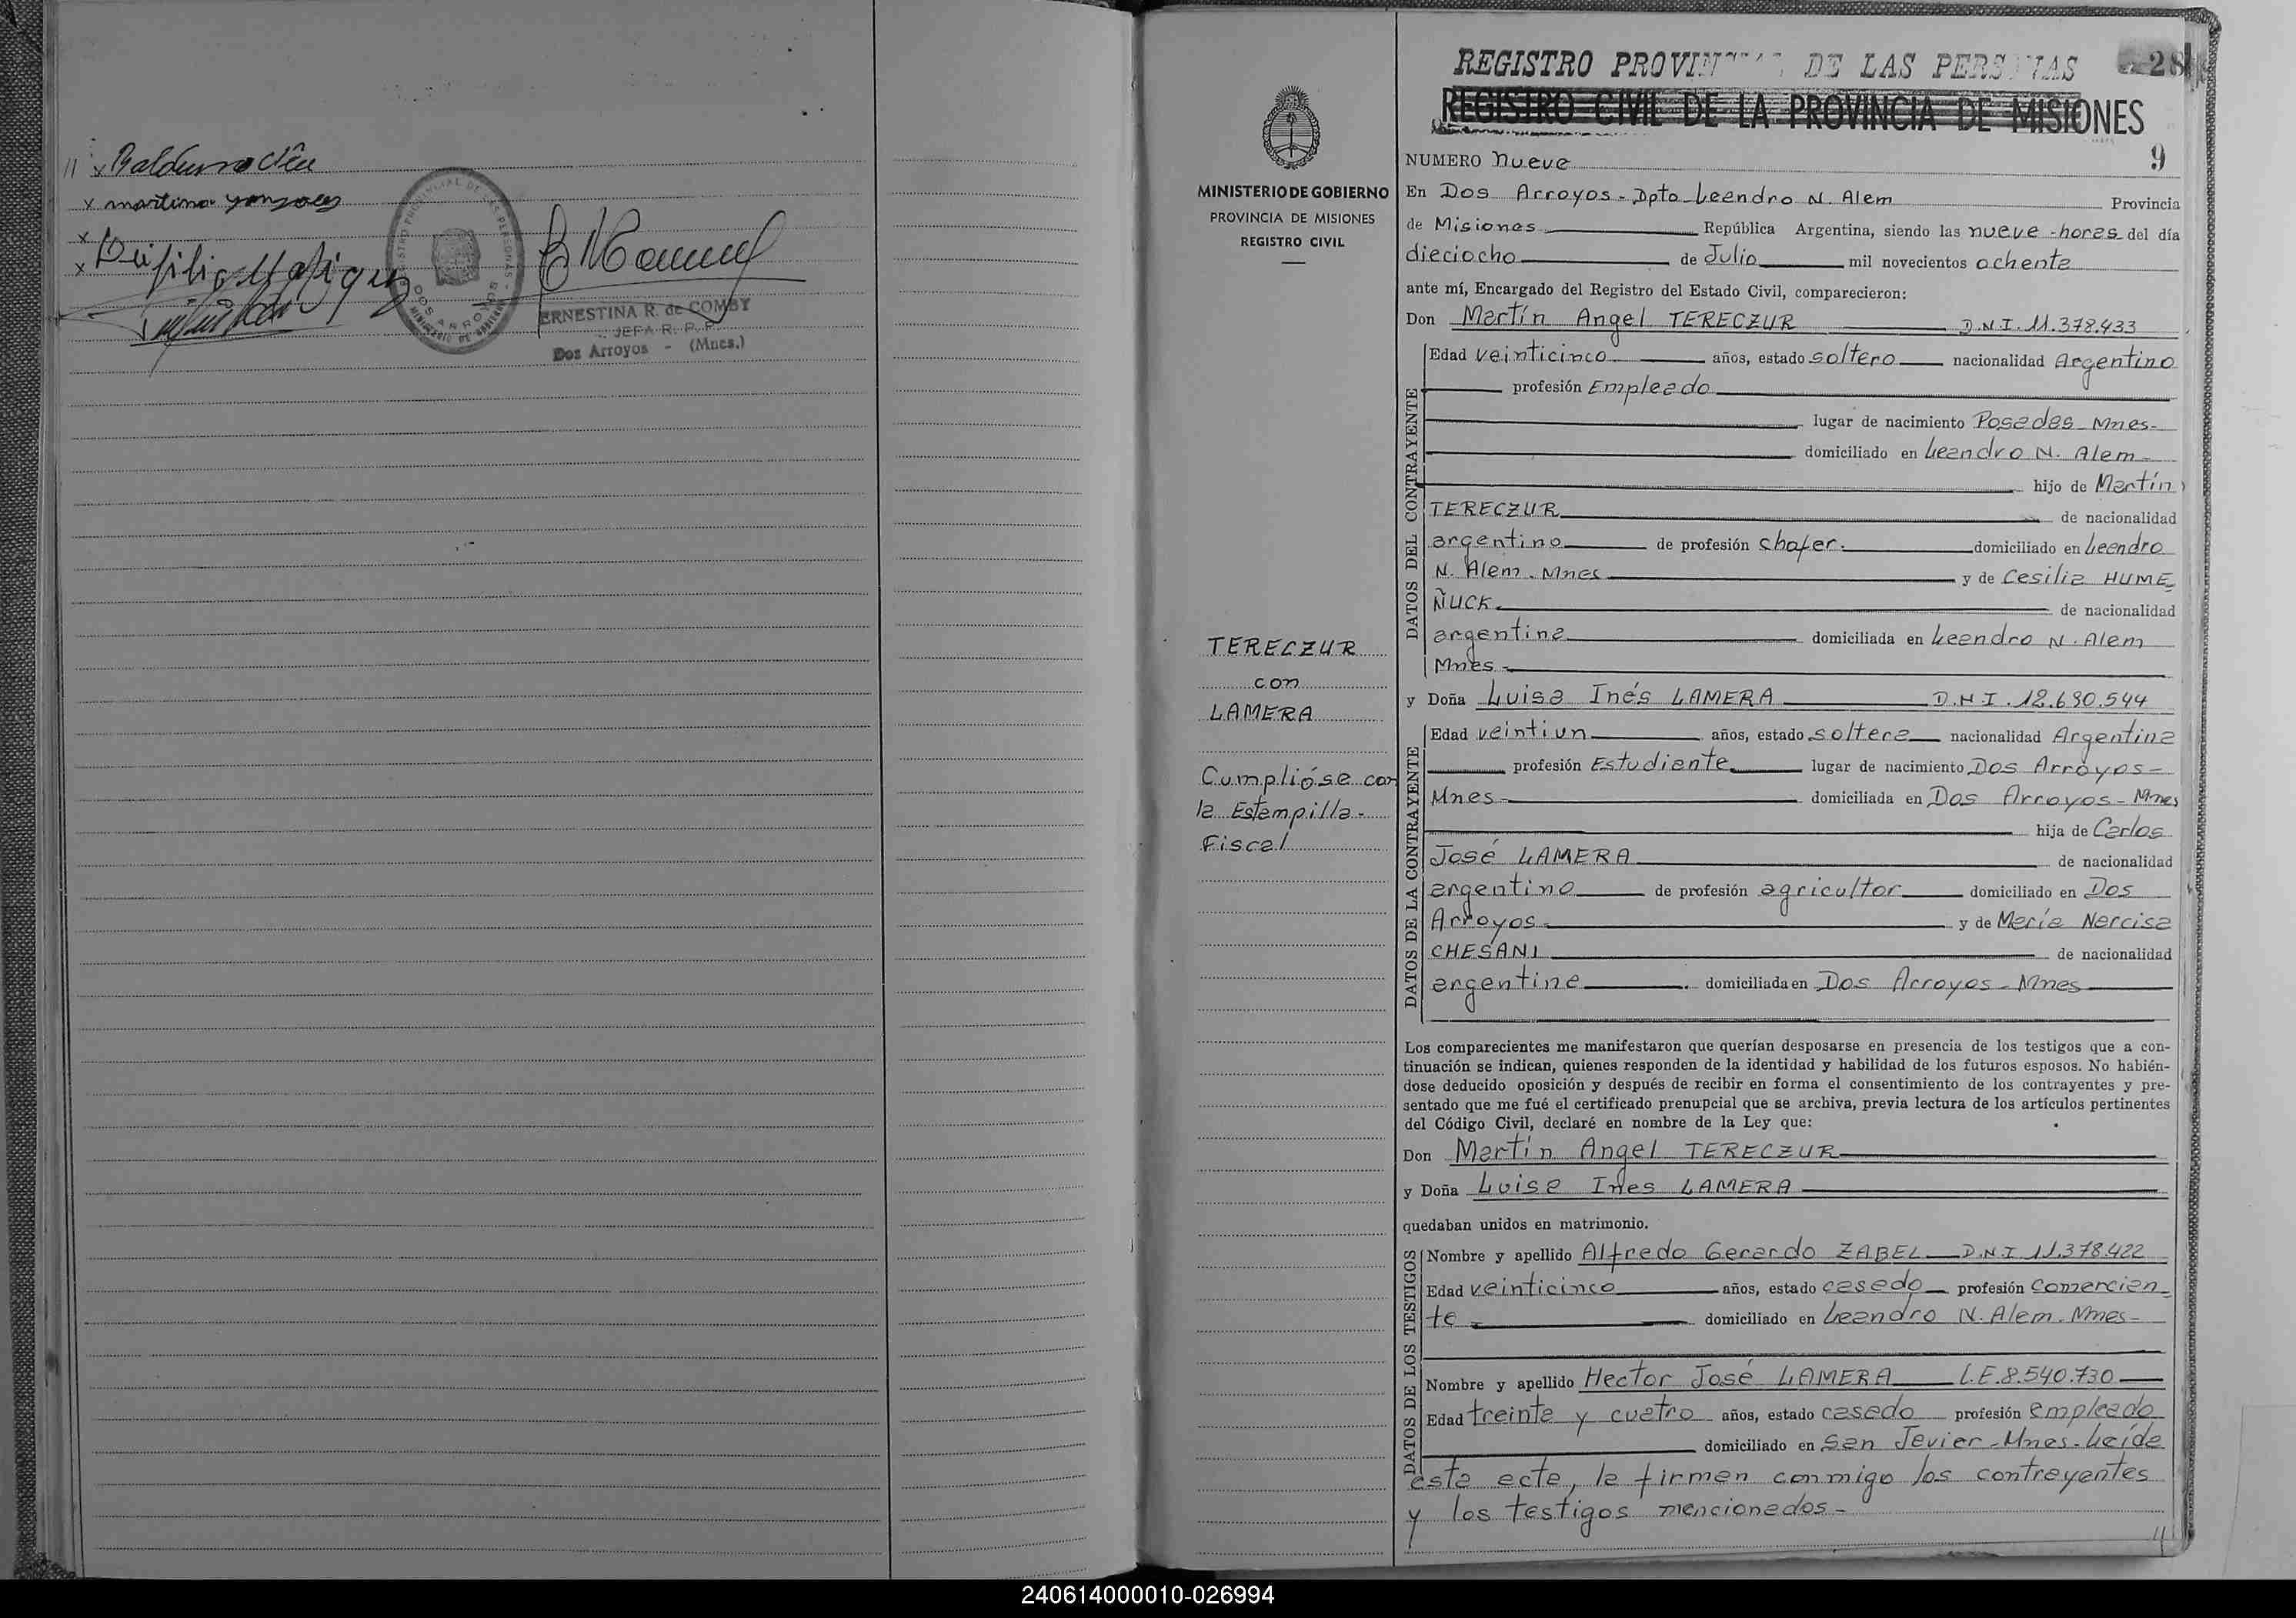 11 x
x martina
x
x
ERNESTINA R. de COMBY
JEFA R. P. P.
Dos Arroyos - (Mnes.)
REGISTRO DE LAS
28
REGISTRO CIVIL DE LA PROVINCIA DE MISIONES
9
MINISTERIO DE GOBIERNO
PROVINCIA DE MISIONES
REGISTRO CIVIL
TERECZUR
con
LAMERA
Cumplióse con
la Estampilla-
Fiscal
NUMERO nueve
En Dos Arroyos - Dpto Leandro N. Alem Provincia
de Misiones República Argentina, siendo las nueve - horas del día
dieciocho de Julio mil novecientos ochenta
ante mí, Encargado del Registro del Estado Civil, comparecieron:
Don Martín Angel TERECZUR D.N.I. 11.378.433
DATOS DEL CONTRAYENTE
Edad veinticinco años, estado soltero nacionalidad Argentino
profesión Empleado
lugar de nacimiento Posadas Mnes-
domiciliado en Leandro N. Alem-
hijo de Martín
TERECZUR de nacionalidad
argentino de profesión chofer. domiciliado en Leandro
N. Alem. Mnes y de Cesilia HUME_
ÑUCK de nacionalidad
argentina domiciliada en Leandro N. Alem
Mnes-
y Doña Luisa Inés LAMERA D.N.I. 12.680.544
DATOS DE LA CONTRAYENTE
Edad veintiun años, estado soltera nacionalidad Argentina
profesión Estudiante lugar de nacimiento Dos Arroyos-
Mnes- domiciliada en Dos Arroyos- Mnes
hija de Carlos
José LAMERA de nacionalidad
argentino de profesión agricultor domiciliado en Dos
Arroyos- y de María Narcisa
CHESANI de nacionalidad
argentina domiciliada en Dos Arroyos - Mnes
Los comparecientes me manifestaron que querían desposarse en presencia de los testigos que a con-
tinuación se indican, quienes responden de la identidad y habilidad de los futuros esposos. No habién-
dose deducido oposición y después de recibir en forma el consentimiento de los contrayentes y pre-
sentado que me fué el certificado prenupcial que se archiva, previa lectura de los artículos pertinentes
del Código Civil, declaré en nombre de la Ley que:
Don Martín Angel TERECZUR
y Doña Luisa Ines LAMERA
quedaban unidos en matrimonio.
DATOS DE LOS TESTIGOS
Nombre y apellido Alfredo Gerardo ZABEL D.N.I 11.378.422
Edad veinticinco años, estado casado profesión comercian_
te - domiciliado en Leandro N. Alem. Mnes-
Nombre y apellido Hector José LAMERA L.E. 8.540.730
Edad treinta y cuatro años, estado casado profesión empleado
domiciliado en San Javier - Mnes - Leída
esta acta, la firman conmigo los contrayentes
y los testigos mencionados-
240614000010-026994